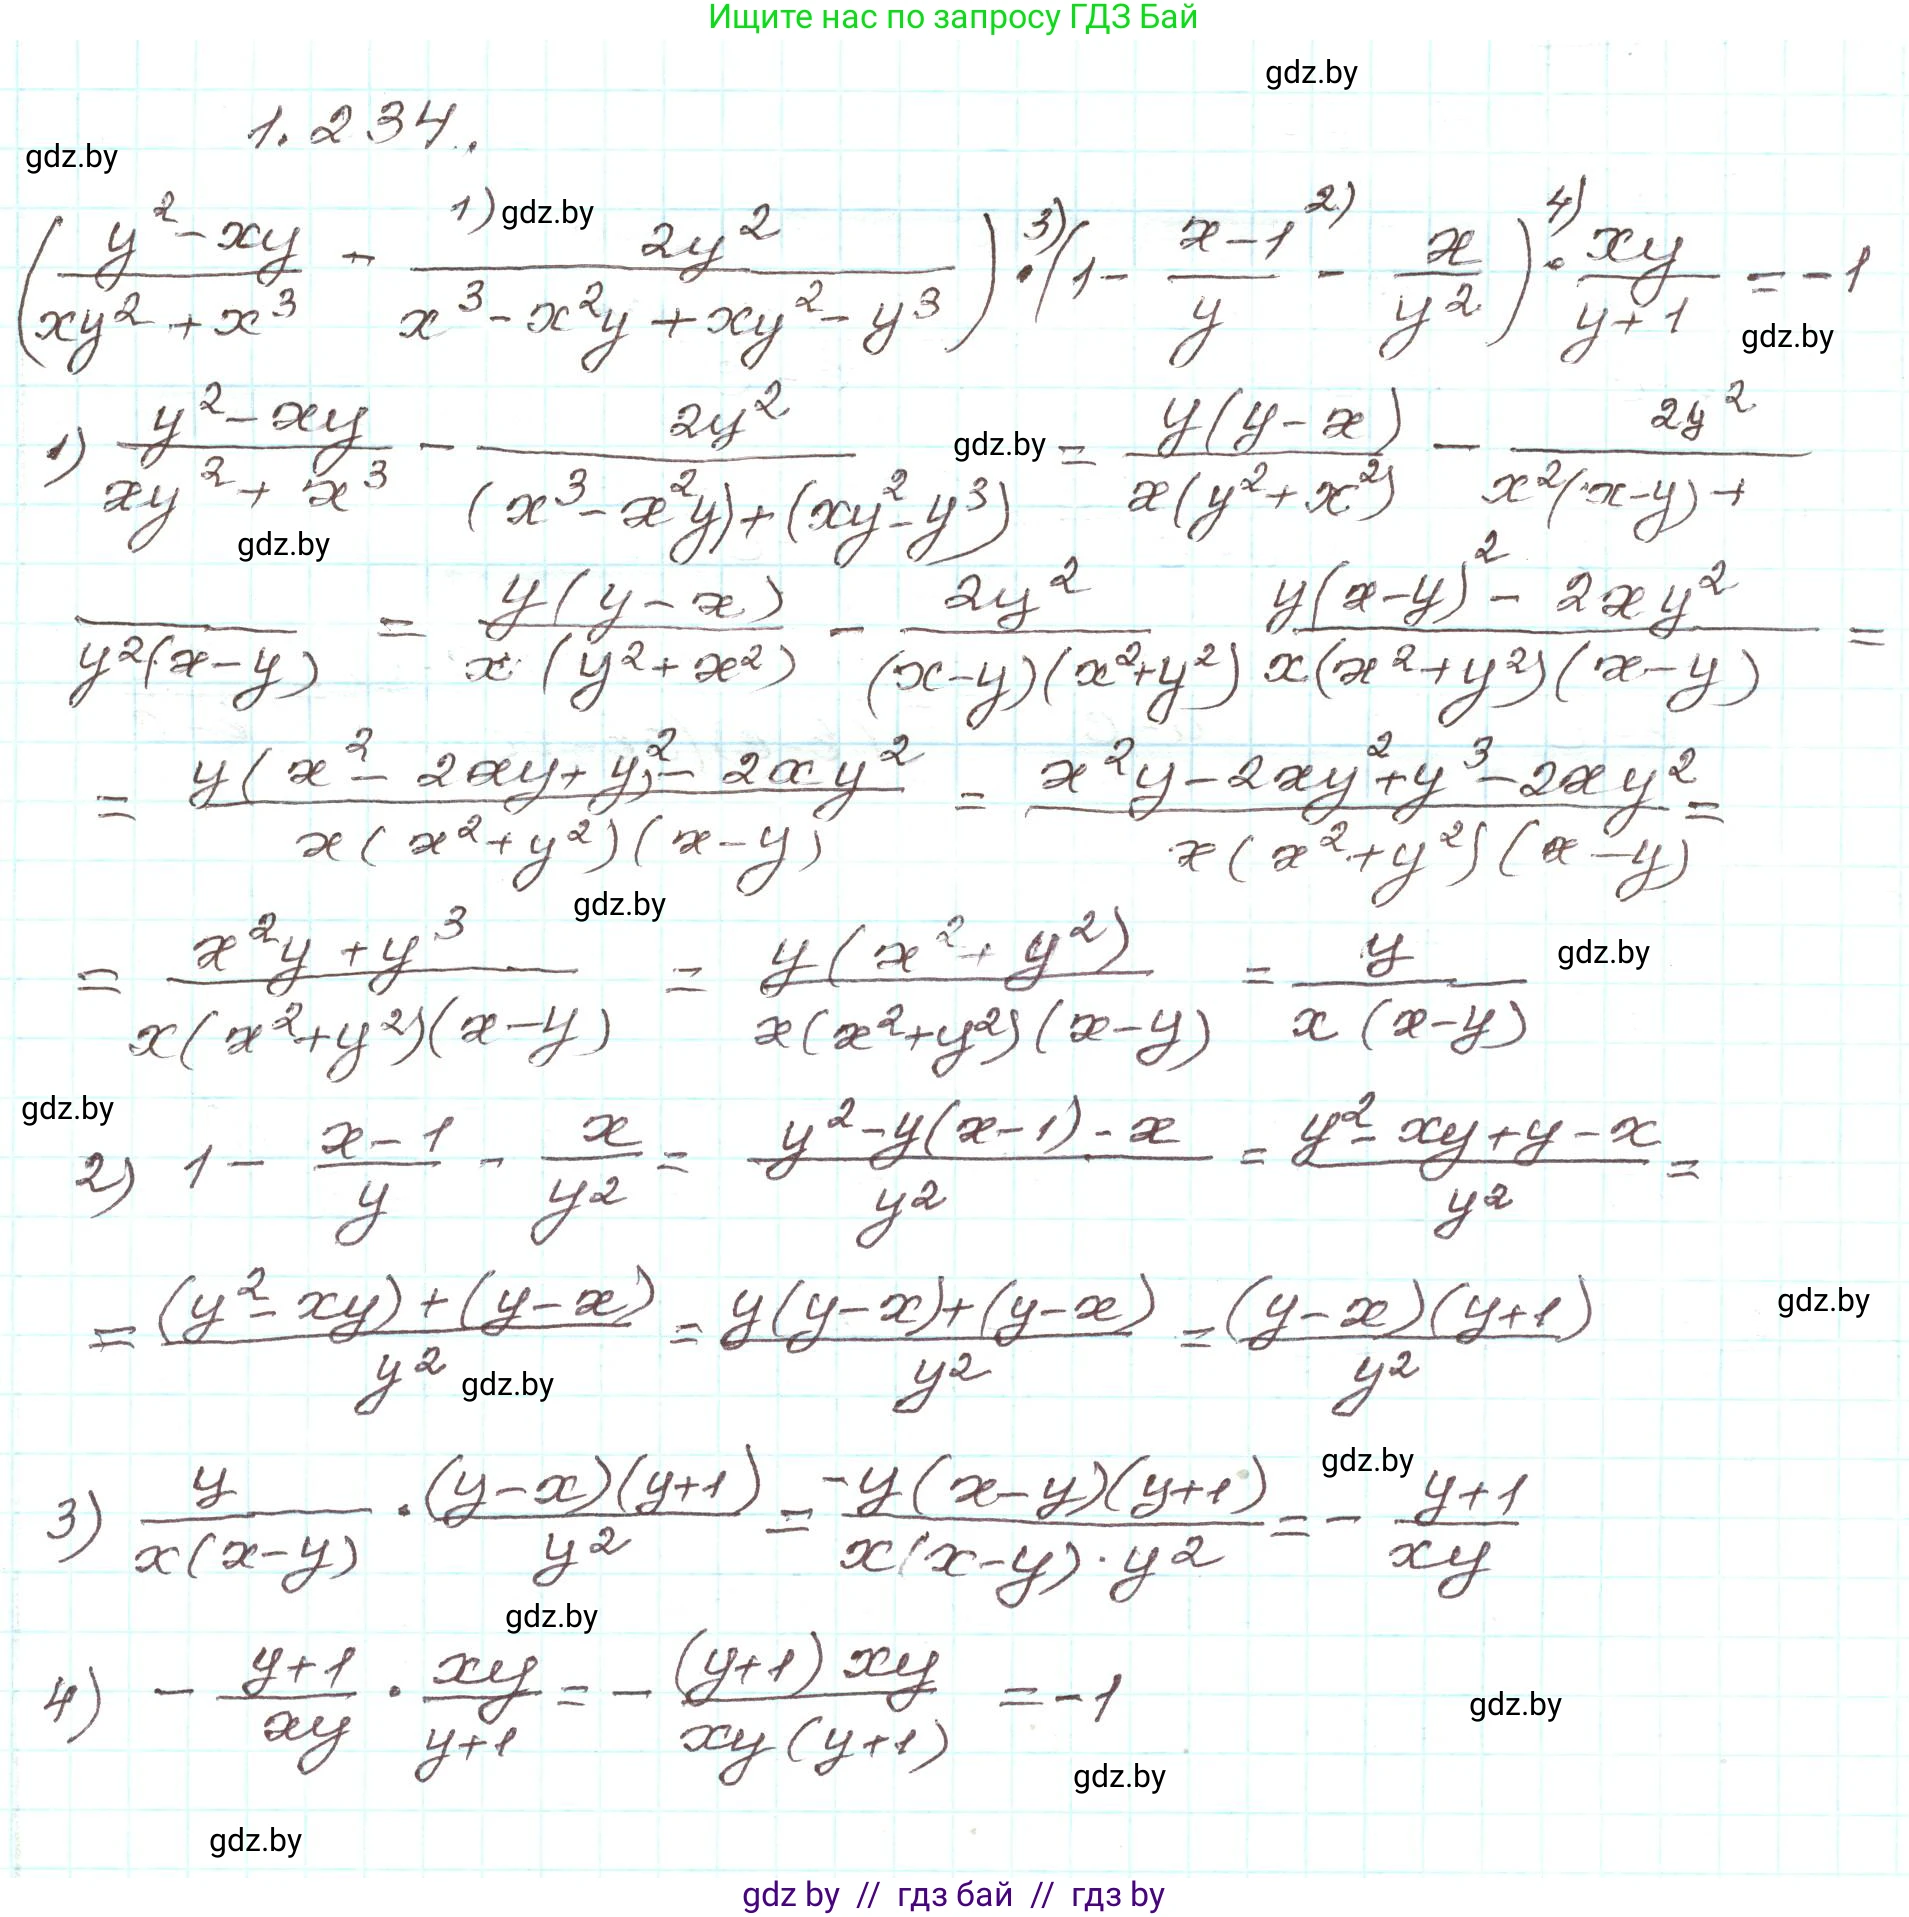 Ищите нас по запросу ГДЗ Бай
gdz.by
1.234.
gdz.by
1) gdz.by 3) 2) 4)
((y²-xy)/(xy²+x³) - 2y²/(x³-x²y+xy²-y³))·(1-(x-1)/y - x/y²)·xy/(y+1) = -1
gdz.by
1) (y²-xy)/(xy²+x³) - 2y²/((x³-x²y)+(xy²-y³)) gdz.by = y(y-x)/(x(y²+x²)) - 2y²/(x²(x-y)+
gdz.by
y²(x-y)) = y(y-x)/(x(y²+x²)) - 2y²/((x-y)(x²+y²)) (y(x-y)²-2xy²)/(x(x²+y²)(x-y)) =
= (y(x²-2xy+y²)-2xy²)/(x(x²+y²)(x-y)) = (x²y-2xy²+y³-2xy²)/(x(x²+y²)(x-y)) =
gdz.by
= (x²y+y³)/(x(x²+y²)(x-y)) = y(x²+y²)/(x(x²+y²)(x-y)) = y/(x(x-y)) gdz.by
gdz.by
2) 1-(x-1)/y - x/y² = (y²-y(x-1)-x)/y² = (y²-xy+y-x)/y² =
= ((y²-xy)+(y-x))/y² = (y(y-x)+(y-x))/y² = (y-x)(y+1)/y² gdz.by
gdz.by
gdz.by
3) y/(x(x-y)) · (y-x)(y+1)/y² = -y(x-y)(y+1)/(x(x-y)·y²) = - (y+1)/(xy)
gdz.by
4) - (y+1)/(xy) · xy/(y+1) = - (y+1)xy/(xy(y+1)) = -1 gdz.by
gdz.by
gdz.by
gdz by // гдз бай // гдз by